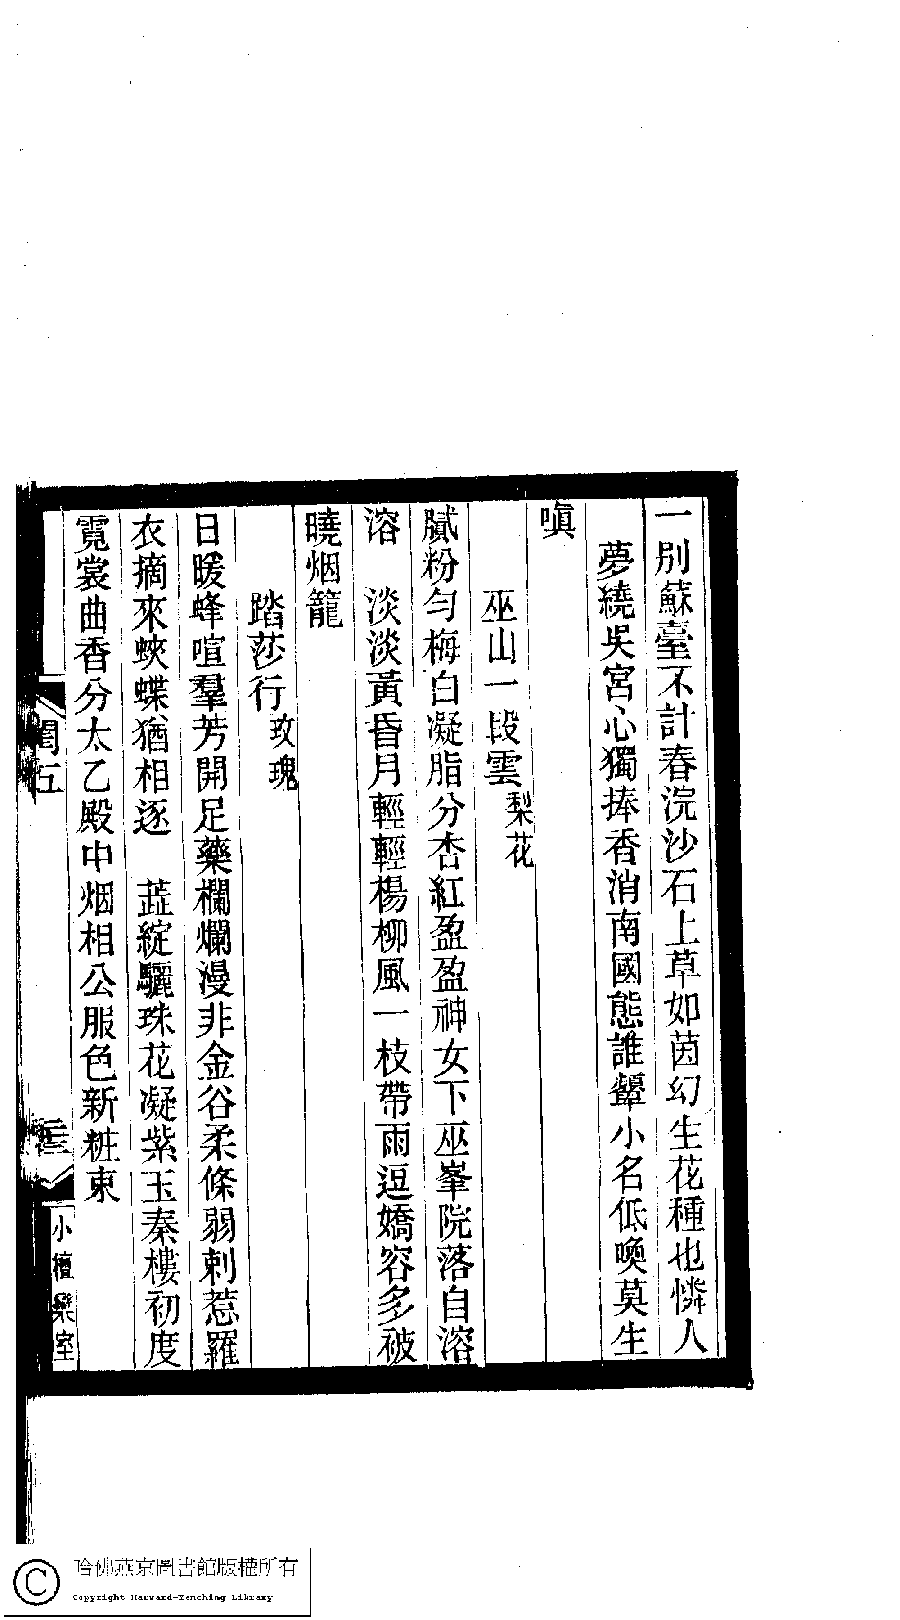 一別蘇臺不計春浣沙石上草如茵幻生花種也憐人
夢繞吳宮心獨捧香消南國態誰顰小名低喚莫生
嗔
巫山一段雲 梨花
膩粉勻梅白凝脂分杏紅盈盈神女下巫峯院落自溶
溶　淡淡黃昏月輕輕楊柳風一枝帶雨逗嬌容多被
曉烟籠
踏莎行 玫瑰
日暖蜂喧羣芳開足藥欄爛漫非金谷柔條弱刺惹羅
衣摘來蛺蝶猶相逐　蕋綻驪珠花凝紫玉秦樓初度
霓裳曲香分太乙殿中烟相公服色新粧束
閨五
小檀欒室
哈佛燕京圖書館版權所有
Copyright Harvard-Yenching Library